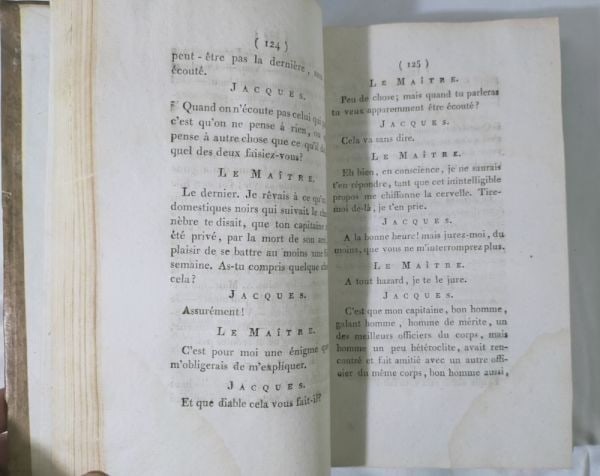 ( 124 )
peut-être pas la dernière,
écouté.
JACQUES.
Quand on n'écoute pas celui qui
c'est qu'on ne pense à rien, ou
pense à autre chose que ce qu'il
quel des deux faisiez-vous?
LE MAÎTRE.
Le dernier. Je rêvais à ce qu'un
domestiques noirs qui suivait le
nèbre te disait, que ton capitaine
été privé, par la mort de son
plaisir de se battre au moins une
semaine. As-tu compris quelque
cela?
JACQUES.
Assurément!
LE MAÎTRE.
C'est pour moi une énigme que
m'obligerais de m'expliquer.
JACQUES.
Et que diable cela vous fait-il?
( 125 )
LE MAÎTRE.
Peu de chose; mais quand tu parleras
tu veux apparemment être écouté?
JACQUES.
Cela va sans dire.
LE MAÎTRE.
Eh bien, en conscience, je ne saurais
t'en répondre, tant que cet inintelligible
propos me chiffonne la cervelle. Tire-
moi de-là, je t'en prie.
JACQUES.
A la bonne heure! mais jurez-moi, du
moins, que vous ne m'interromprez plus.
LE MAÎTRE.
A tout hazard, je te le jure.
JACQUES.
C'est que mon capitaine, bon homme,
galant homme, homme de mérite, un
des meilleurs officiers du corps, mais
homme un peu hétéroclite, avait ren-
contré et fait amitié avec un autre offi-
cier du même corps, bon homme aussi,